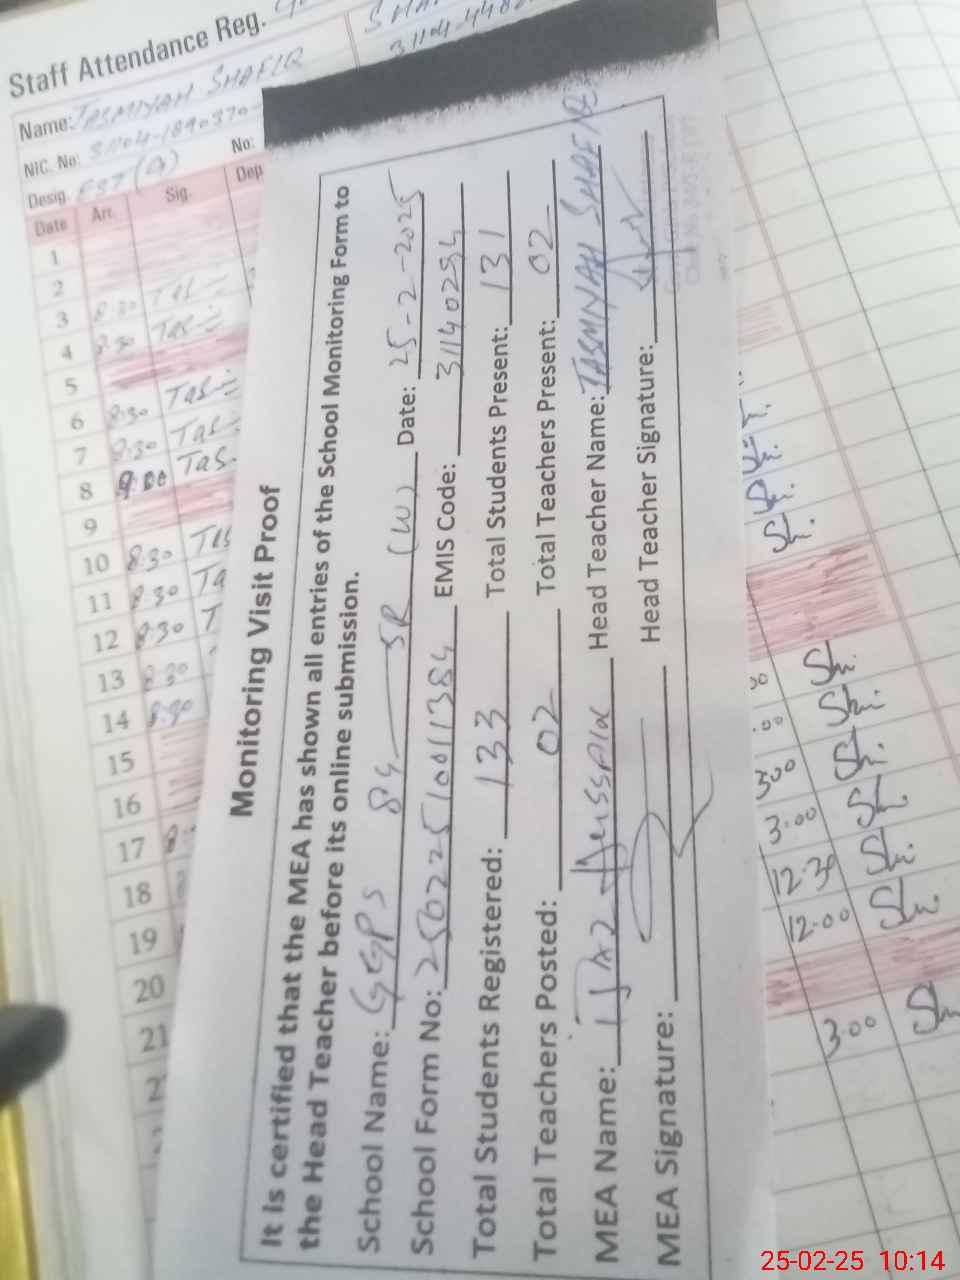 Staff Attendance Reg.
Name: TASMIYAH SHAFIR
NIC. No: 31104-1890370-
Desig. EST (G) No:
Date Arr. Sig. Dep
1
2
3 8:30 Tas
4 8:30 Tas
5
6 8:30 Tas
7 8:30 Tas
8 9:00 Tas
9
10 8:30 Tas
11 8:30 Ta
12 8:30 T
13 8:30
14 8:30
15
16
17 8:
18
19
20
21
Monitoring Visit Proof
It is certified that the MEA has shown all entries of the School Monitoring Form to
the Head Teacher before its online submission.
School Name: GGPS 84 5R (W) Date: 25-2-2025
School Form No: 25022510011384 EMIS Code: 31140294
Total Students Registered: 133 Total Students Present: 131
Total Teachers Posted: 02 Total Teachers Present: 02
MEA Name: Head Teacher Name: TASMIYAH SHAFIR
MEA Signature: Head Teacher Signature:
Sh.
Sh.
:00 Sh.
3:00 Sh.
3:00 Sh.
12:30 Sh.
12:00 Sh.
3:00 Sh
25-02-25 10:14